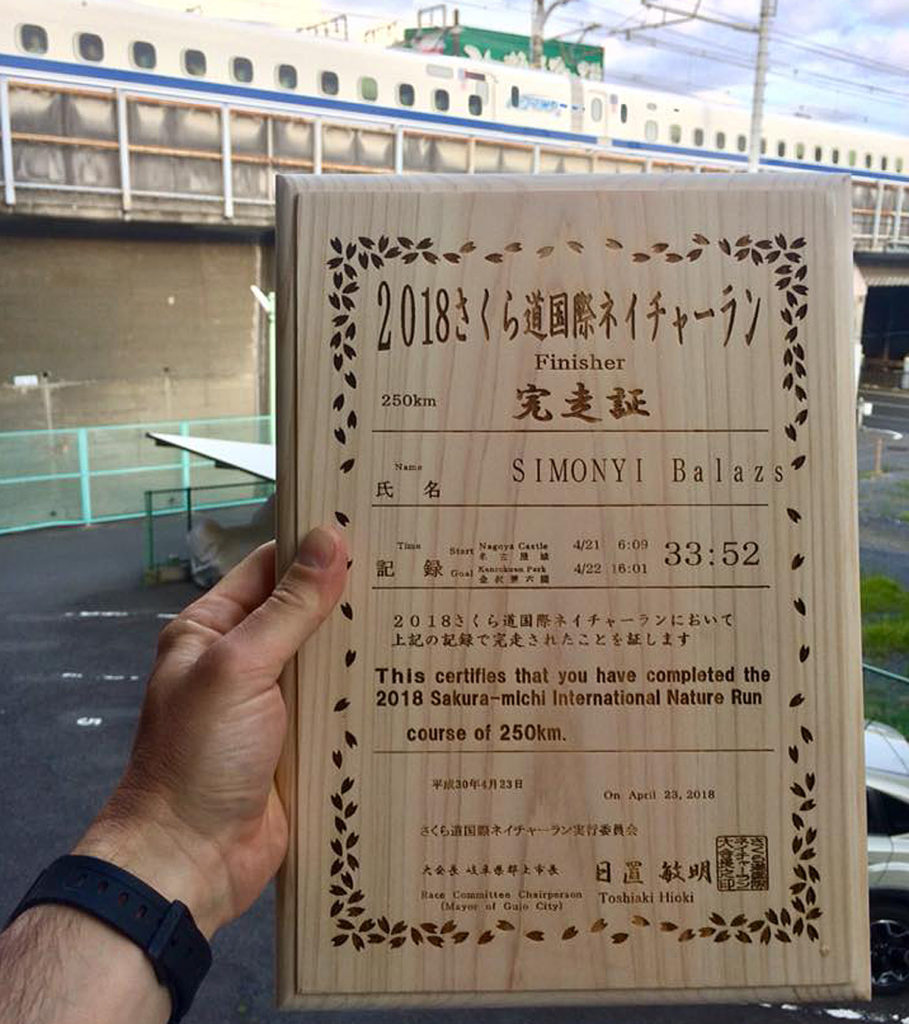 2018さくら道国際ネイチャーラン
Finisher
250km 完走証
Name
氏名 SIMONYI Balazs
Time Start Nagoya Castle 4/21 6:09 33:52
名古屋城
記録 Goal Kenrokuen Park 4/22 16:01
金沢兼六園
2018さくら道国際ネイチャーランにおいて
上記の記録で完走されたことを証します
This certifies that you have completed the
2018 Sakura-michi International Nature Run
course of 250km.
平成30年4月23日
On April 23, 2018
さくら道国際ネイチャーラン実行委員会
大会長 岐阜県郡上市長 日置 敏明
Race Committee Chairperson Toshiaki Hioki
(Mayor of Gujo City)